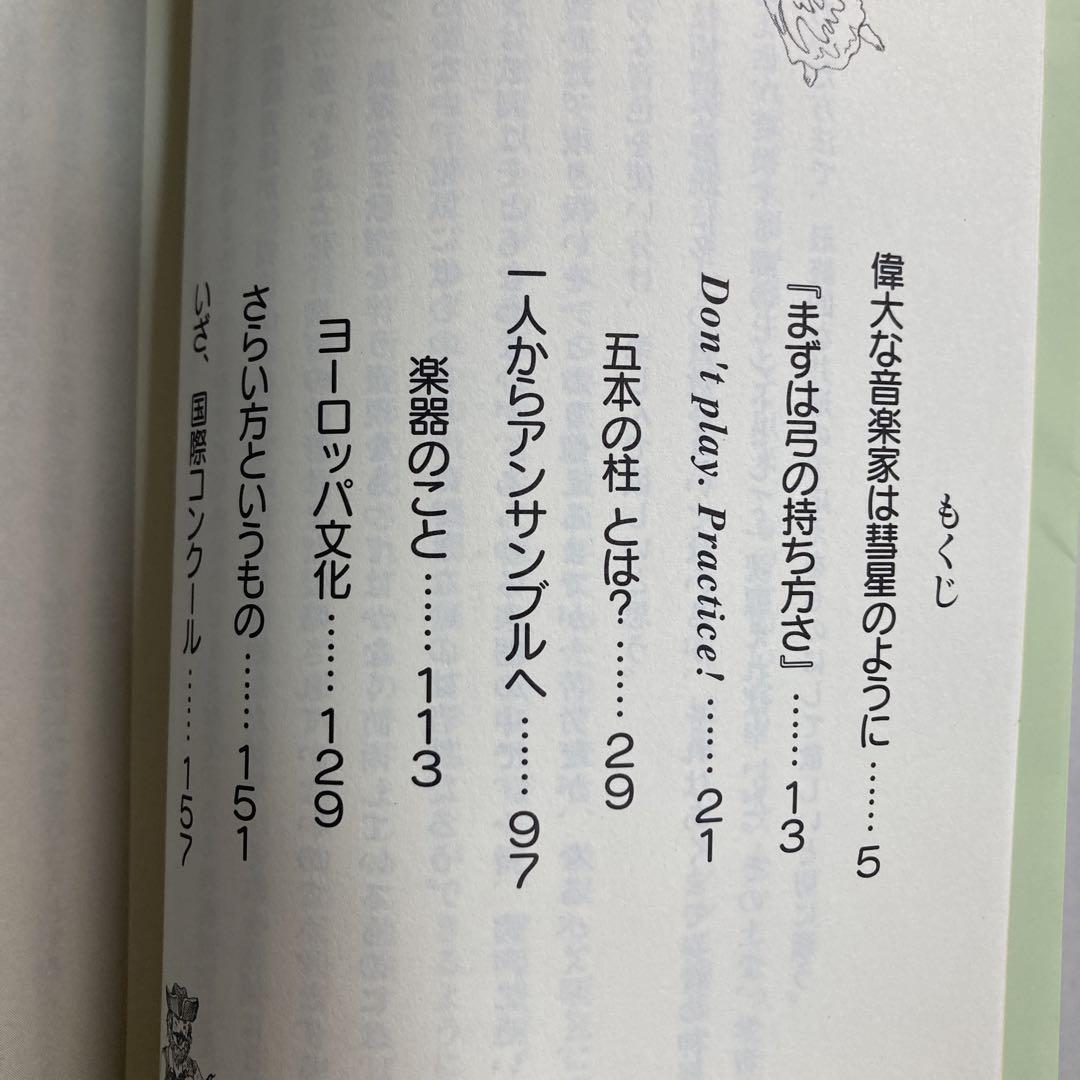 もくじ
偉大な音楽家は彗星のように …… 5
『まずは弓の持ち方さ』 …… 13
Don't play. Practice! …… 21
五本の柱 とは? …… 29
一人からアンサンブルへ …… 97
楽器のこと …… 113
ヨーロッパ文化 …… 129
さらい方というもの …… 151
いざ、国際コンクール …… 157